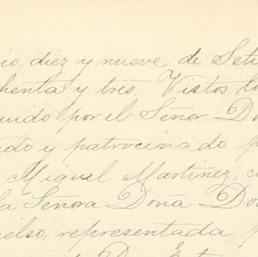 io, diez y nueve de Seti
henta y tres. Vistos lo
uido por el Señor Do
ado y patrocinado p
Miguel Martinez, c
la Señora Doña Do
ielso, representada p